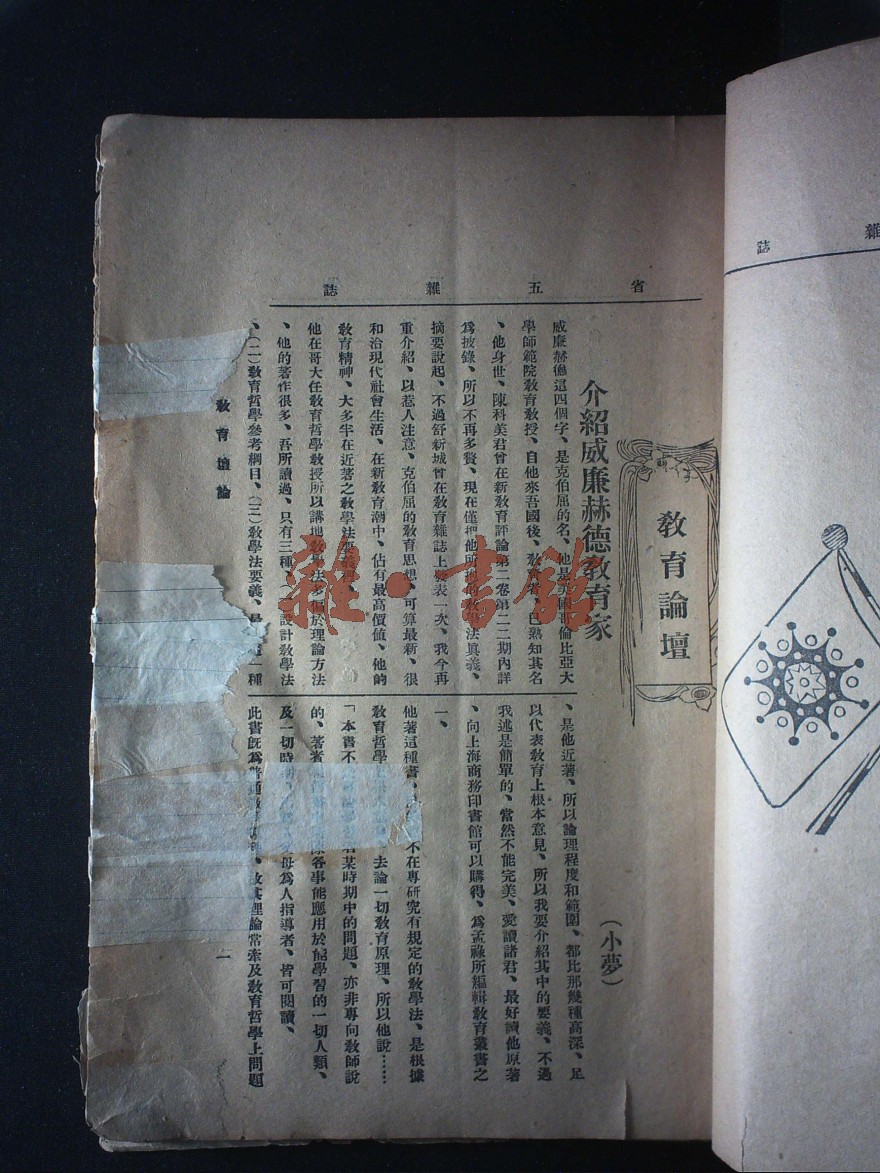 省五雜誌
教育論壇
介紹威廉赫德教育家
（小夢）
威廉赫德這四個字、是克伯屈的名、他是美國哥倫比亞大
學師範院教育教授、自他來吾國後、教育者、已熟知其名
、他身世、陳科美君曾在新教育評論第二卷第二二期內詳
爲披錄、所以不再多贅、現在僅把他所 的教學法眞義、
摘要說起、不過舒新城曾在教育雜誌上發表一次、我今再
重介紹、以惹人注意、克伯屈的教育思想、可算最新、很
和洽現代社會生活、在新教育潮中、佔有最高價値、他的
教育精神、大多半在近著之教學法要義
他在哥大任教育哲學教授所以講地教學法多偏於理論方法
、他的著作很多、吾所讀過、只有三種、 設計教學法
、（二）教育哲學參考綱目、（三）教學法要義、 一種
、是他近著、所以論理程度和範圍、都比那幾種高深、足
以代表教育上根本意見、所以我要介紹其中的要義、不過
我述是簡單的、當然不能完美、愛讀諸君、最好讀他原著
、向上海商務印書館可以購得、爲孟祿所編輯教育叢書之
一、
他著這種書、 不在專研究有規定的教學法、是根據
教育哲學 去論一切教育原理、所以他說……
「本書不 某時期中的問題、亦非專向教師說
的、著者 各事能應用於能學習的一切人類、
及一切時 母爲人指導者、皆可閱讀、
此書既爲普通教 、故其理論常牽及教育哲學上問題
教育壇論
一
雜誌
雜·書館